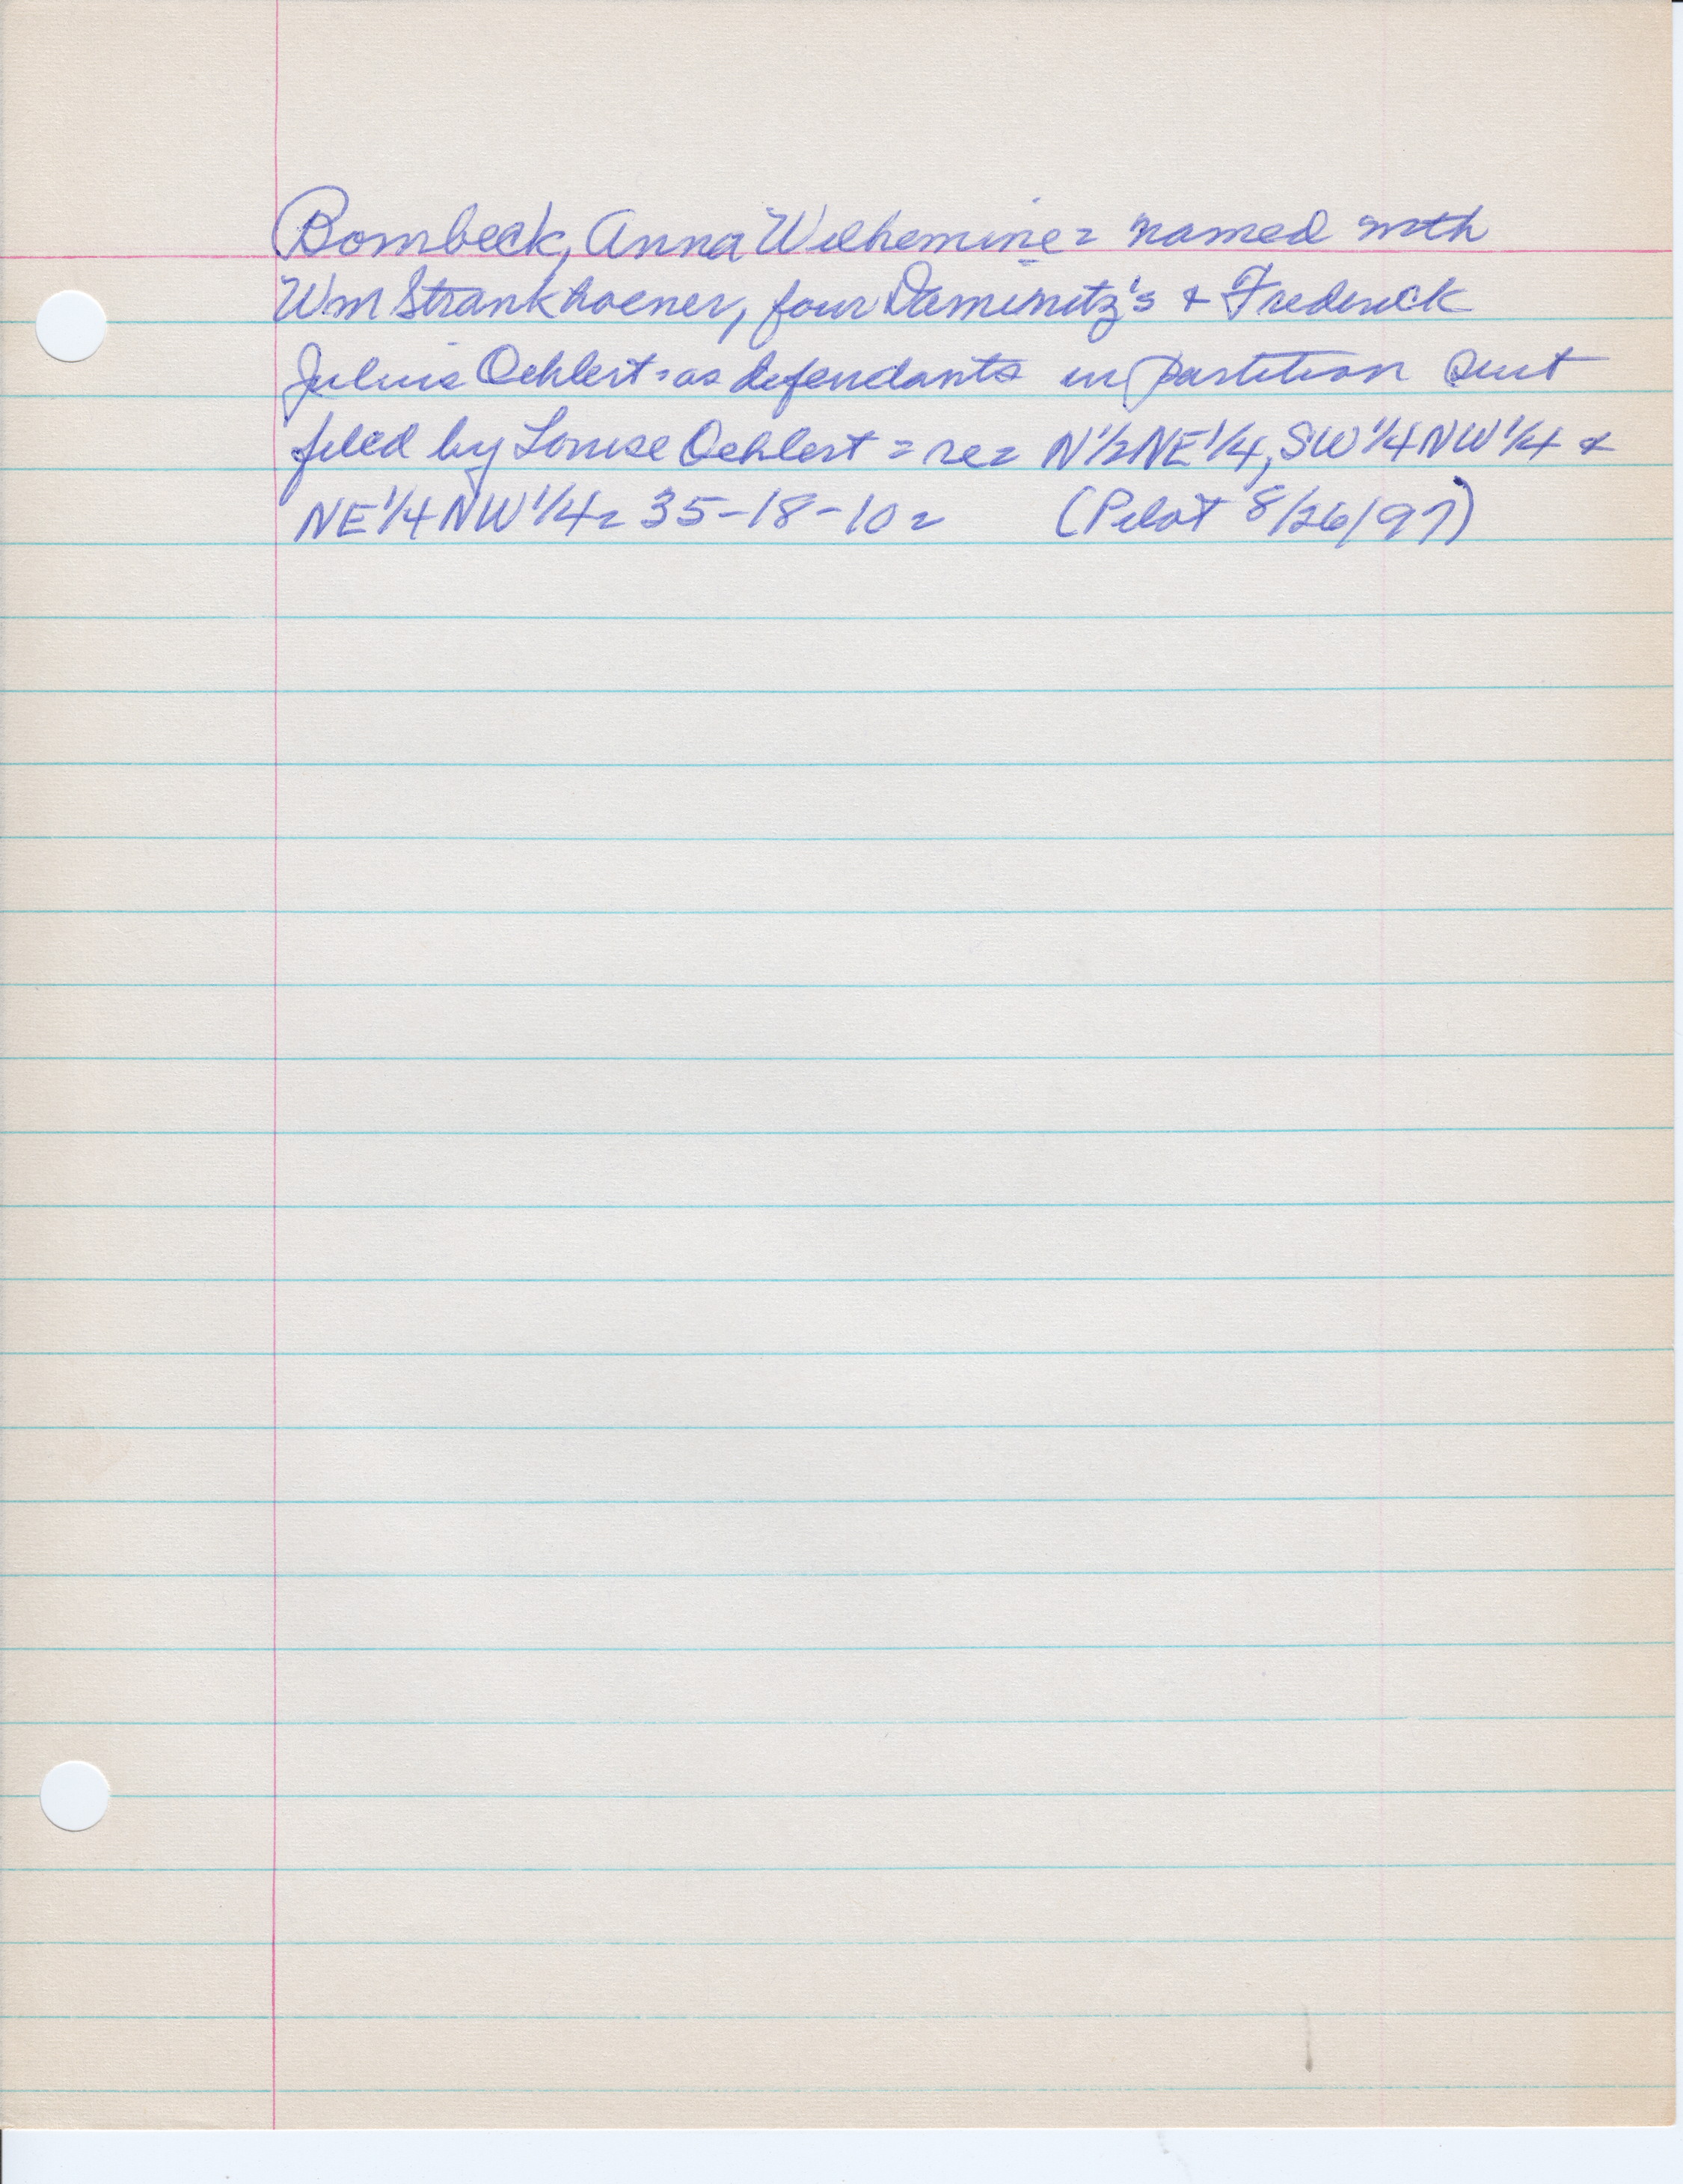 Bombeck, Anna Wilhemine = named with
Wm Strankhoener, four Daminitz's & Frederick
Julius Oehlert = as defendants in partition suit
filed by Louise Oehlert = re = N 1/2 NE 1/4, SW 1/4 NW 1/4 &
NE 1/4 NW 1/4 = 35-18-10 = (Pilot 8/26/97)